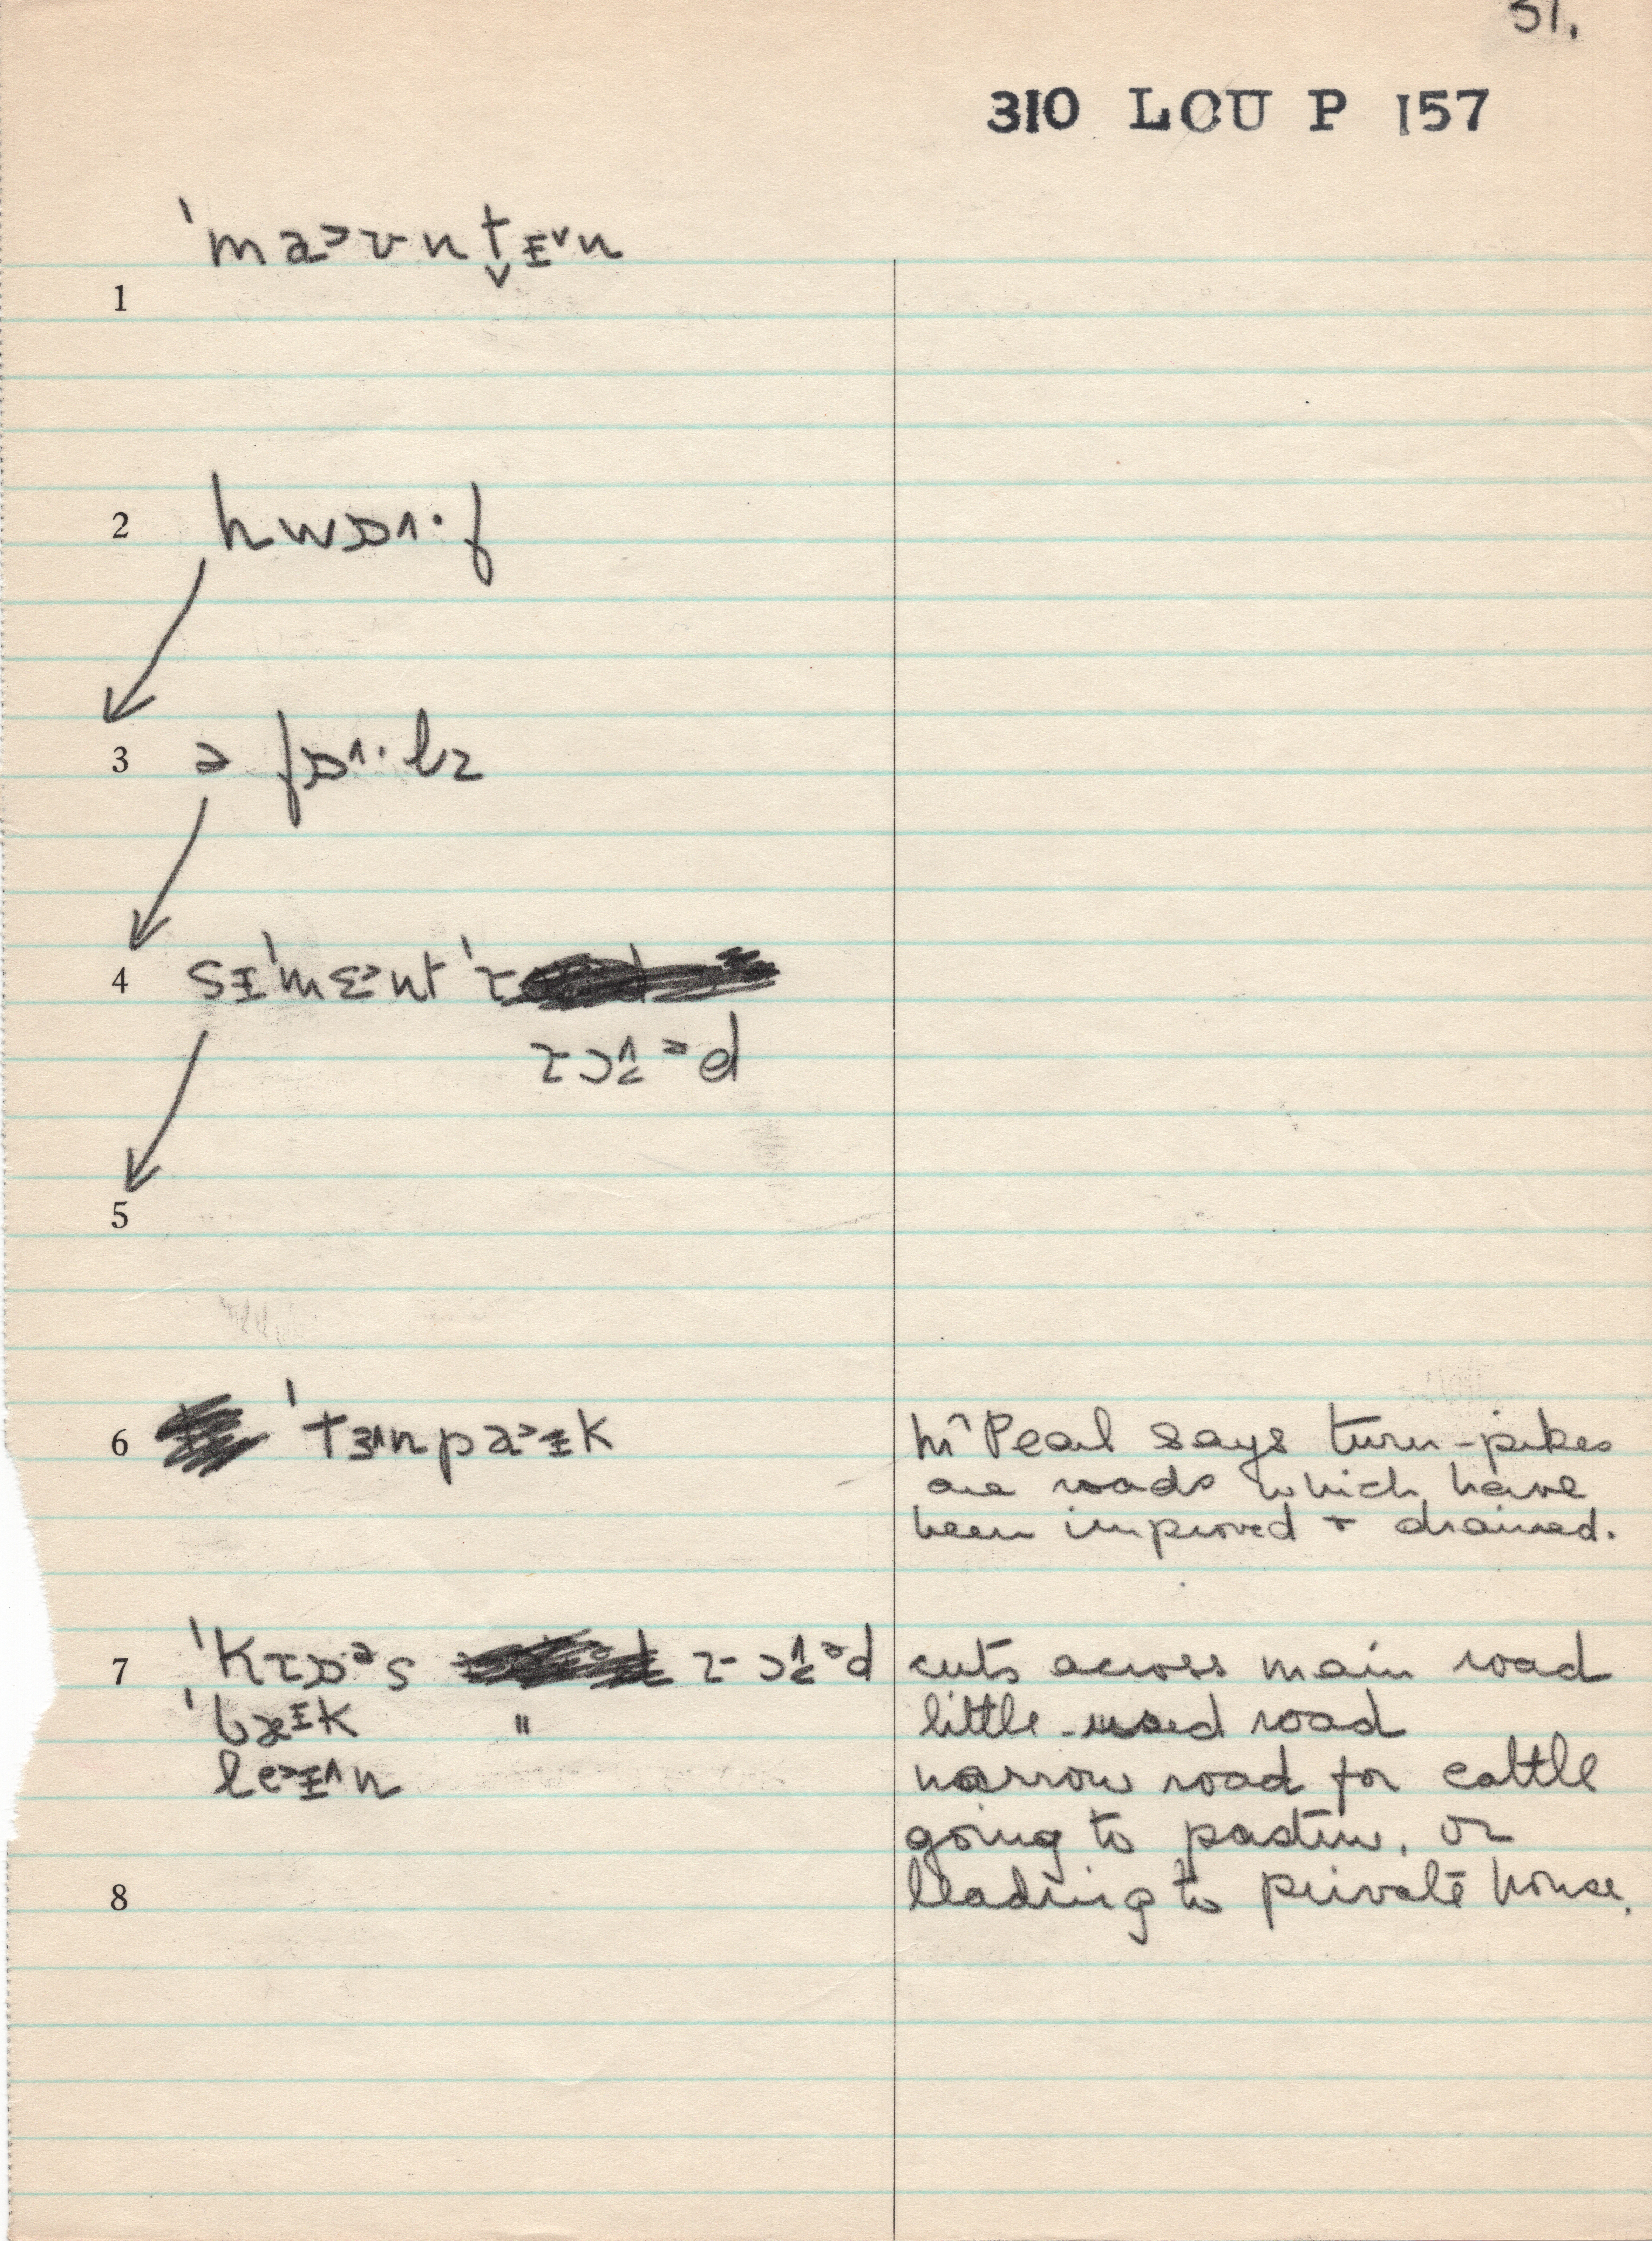 31.
310 LOU P 157
1 ˈmaᵊvntᵻ˅n
2 hwɒ˄·f
3 ə fɒ˄·lz
4 sᵻˈmɛᵊnt ˈɾ
ɾɔ˄ᵊd
5
6 ˈtɜ˄npaᵊᵻk Mr Peal says turn-pikes
are roads which have
been improved + drained.
7 ˈkɾɒᵊs ɾɔ˄ᵊd cuts across main road
ˈbæᵻk " little-used road
leᵊᵻ˄n narrow road for cattle
going to pasture, or
8 leading to private house.